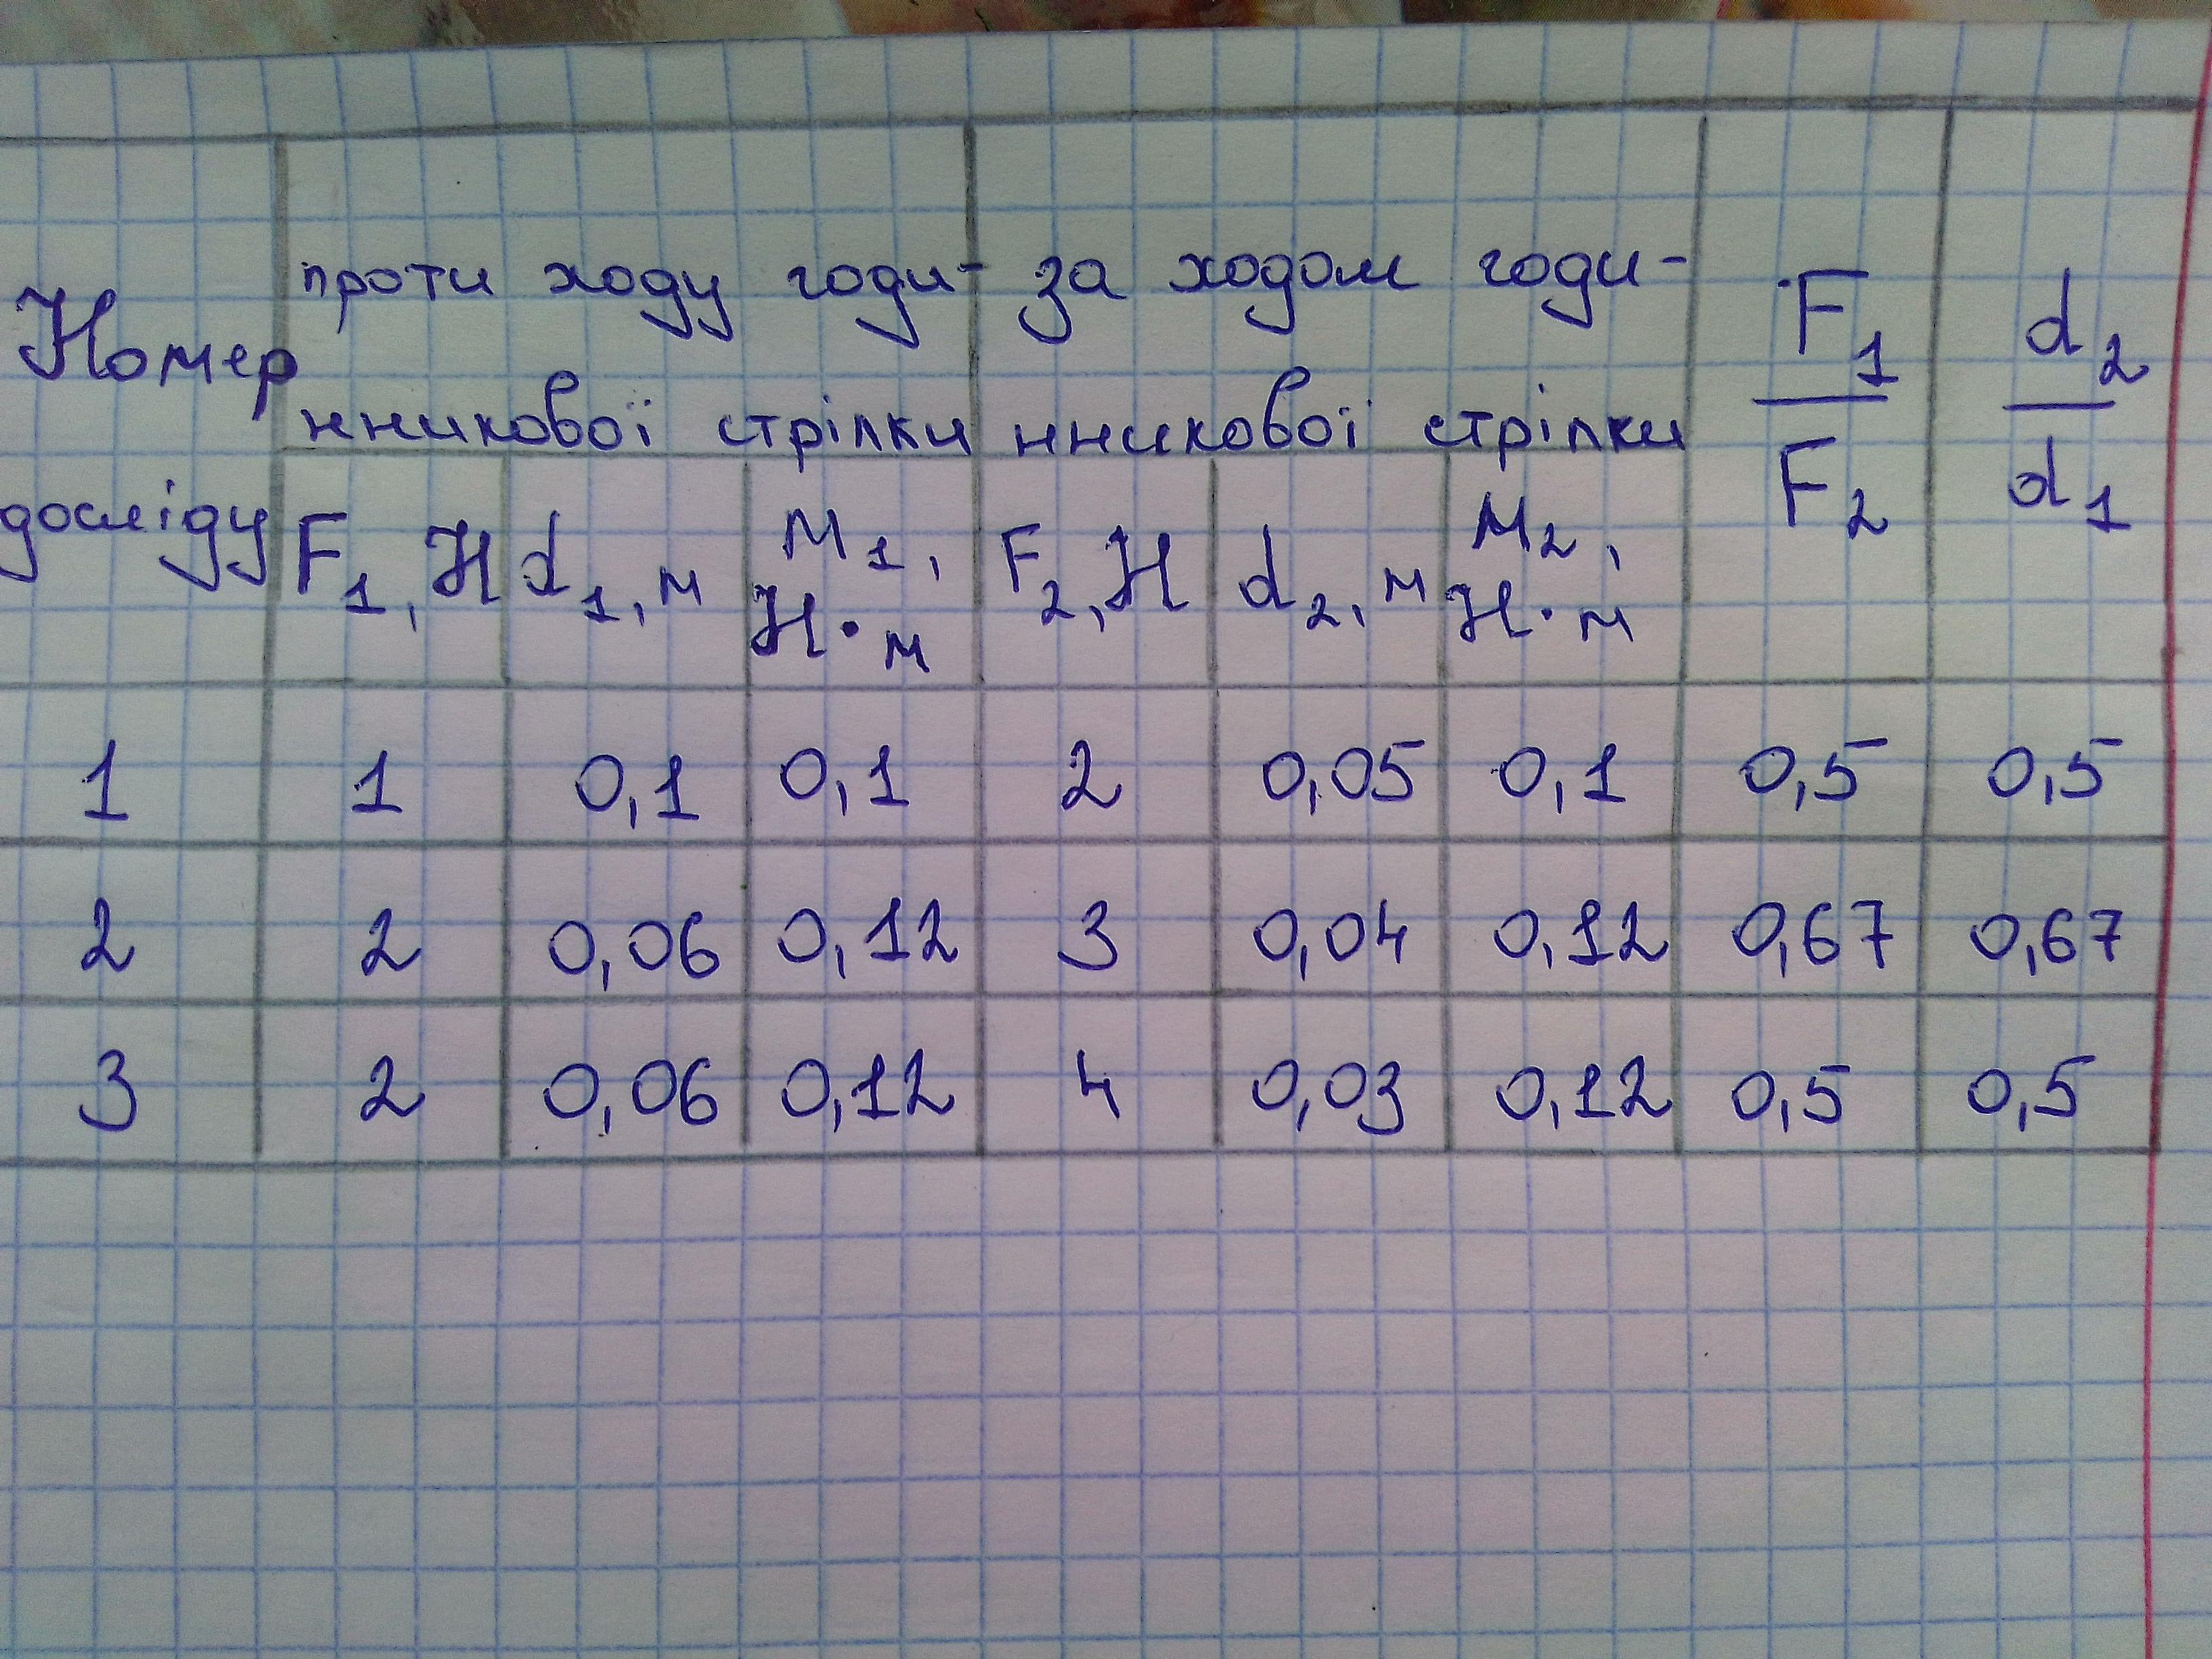 Номер досліду
проти ходу годи-
нникової стрілки
за ходом годи-
нникової стрілки
F1/F2
d2/d1
F1, Н d1, м M1, Н·м F2, Н d2, м M2, Н·м
1 1 0,1 0,1 2 0,05 0,1 0,5 0,5
2 2 0,06 0,12 3 0,04 0,12 0,67 0,67
3 2 0,06 0,12 4 0,03 0,12 0,5 0,5